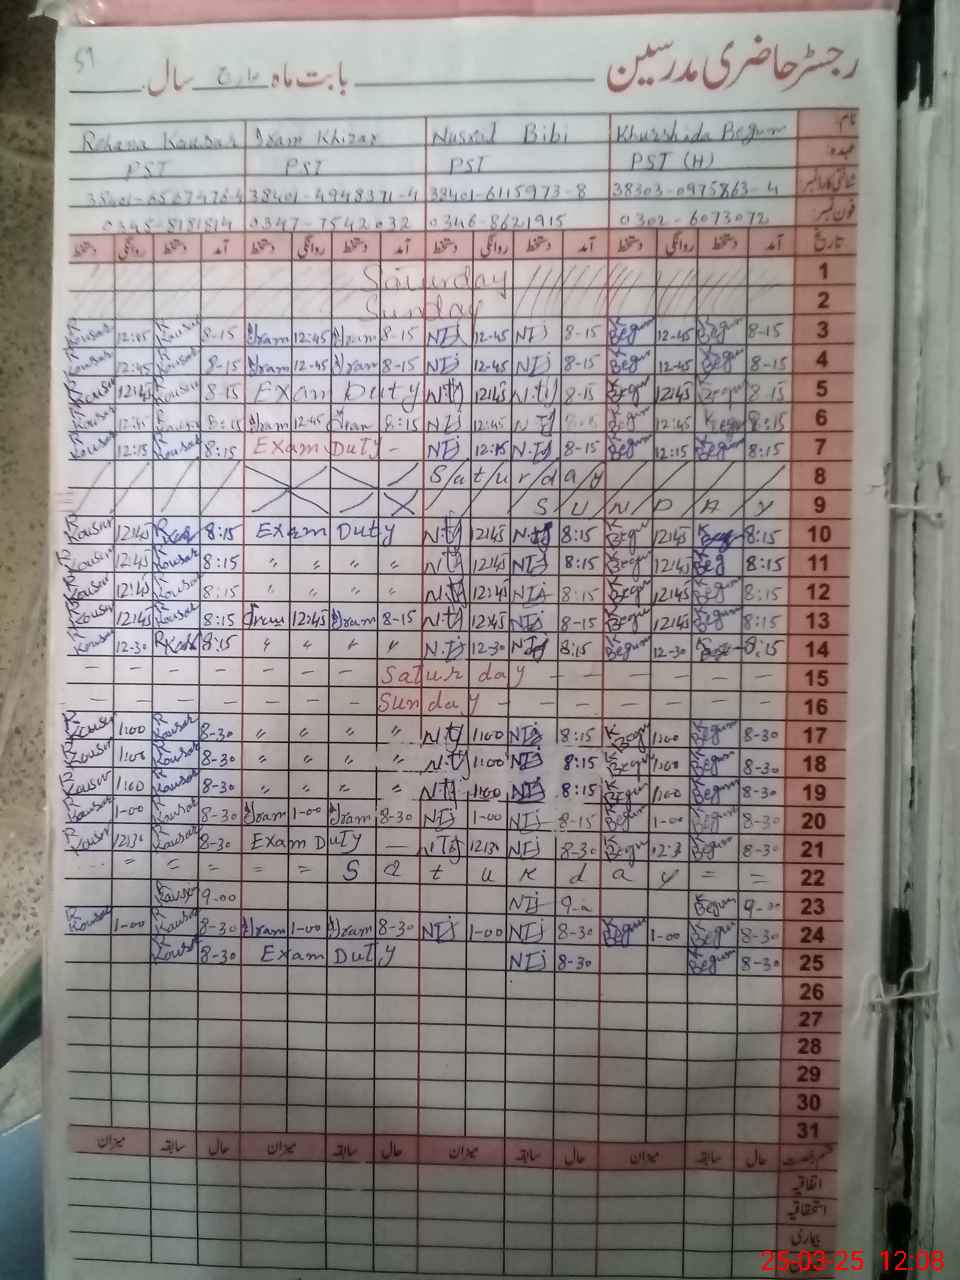 51
رجسٹر حاضری مدرسین بابت ماہ مارچ سال
Rehana Kousar Iram Khizar Nusrat Bibi Khurshida Begum نام:
PST PST PST PST (H) عہدہ:
38401-6567476-4 38401-4948371-4 38401-6115973-8 38303-0975863-4 شناختی کارڈ نمبر
0345-8181814 0347-7542032 0346-8621915 0302-6073072 فون نمبر:
دستخط روانگی دستخط آمد دستخط روانگی دستخط آمد دستخط روانگی دستخط آمد دستخط روانگی دستخط آمد تاریخ
Saturday 1
Sunday 2
R Kousar 12:45 R Kousar 8-15 Iram 12:45 Iram 8-15 NTj 12-45 NTj 8-15 K Begum 12-45 K Begum 8-15 3
R Kousar 12:45 R Kousar 8-15 Iram 12-45 Iram 8-15 NTj 12-45 NTj 8-15 K Begum 12-45 K Begum 8-15 4
R Kousar 12:45 R Kousar 8-15 Exam Duty N.tj 12:45 N.tj 8-15 K Begum 12:45 K Begum 8-15 5
R Kousar 12:45 R Kousar 8:15 Iram 12:45 Iram 8:15 NTj 12:45 N Tj K Begum 12:45 K Begum 8:15 6
R Kousar 12:15 R Kousar 8:15 Exam Duty - NTj 12:15 N.Tj 8-15 K Begum 12:15 K Begum 8:15 7
S/a/t/u/r/d/a/y 8
S U N D A Y 9
R Kousar 12:45 R Kousar 8:15 Exam Duty N.tj 12:45 N.tj 8:15 K Beg 12:45 K Beg 8:15 10
R Kousar 12:45 R Kousar 8:15 " " " " N.tj 12:45 NTj 8:15 K Beg 12:45 K Beg 8:15 11
R Kousar 12:45 R Kousar 8:15 " " " " N.tj 12:45 NTj 8:15 K Begum 12:45 K Begum 8:15 12
R Kousar 12:45 R Kousar 8:15 Iram 12:45 Iram 8-15 N.tj 12:45 NTj 8-15 K Begum 12:45 K Begum 8:15 13
R Kousar 12-30 R Kousar 8:15 " " " " N.Tj 12-30 NTj 8:15 K Begum 12-30 K Begum 8:15 14
- - - - - - Satur day - - - - - 15
- - - - - - Sunday - - - - - - 16
R Kousar 1:00 R Kousar 8-30 " " " " N.tj 1:00 NTj 8:15 K Begum 1:00 K Begum 8-30 17
R Kousar 1:00 R Kousar 8-30 " " " " N.tj 1:00 NTj 8:15 K Begum 1:00 K Begum 8-30 18
R Kousar 1:00 R Kousar 8-30 " " " " N.tj 1:00 NTj 8:15 K Begum 1:00 K Begum 8-30 19
R Kousar 1-00 R Kousar 8-30 Iram 1-00 Iram 8-30 NTj 1-00 NTj 8-15 K Begum 1-00 K Begum 8-30 20
R Kousar 12:30 R Kousar 8-30 Exam Duty - NTj 12:30 NTj 8-30 K Begum K Begum 8-30 21
= = = = = = S a t u r d a y = = 22
R Kousar 9-00 NTj K Begum 23
R Kousar 1-00 R Kousar 8-30 Iram 1-00 Iram 8-30 NTj 1-00 NTj 8-30 K Begum 1-00 K Begum 8-30 24
R Kousar 8-30 Exam Duty NTj 8-30 K Begum 8-30 25
26
27
28
29
30
31
میزان سابقہ حال میزان سابقہ حال میزان سابقہ حال میزان سابقہ حال قسم رخصت
اتفاقیہ
استحقاقیہ
بیماری
25-03-25 12:08